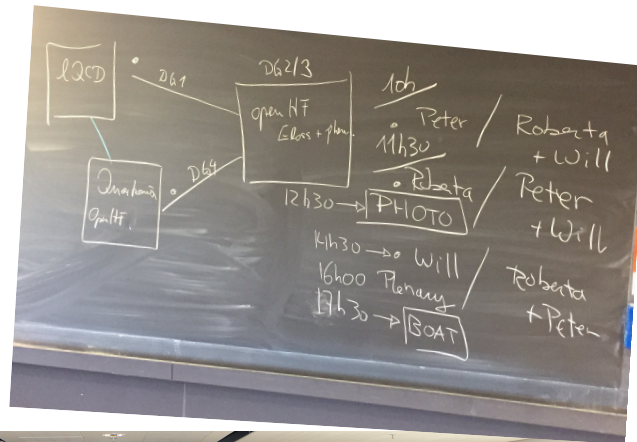 lQCD
DG1
DG2/3
open HF
ELoss + phen.
DG4
Quarkonia
Open HF.
10h
• Peter / Roberta + Will
11h30
• Roberta / Peter + Will
12h30 → PHOTO
14h30 → • Will / Roberta + Peter
16h00 Plenary
17h30 → BOAT